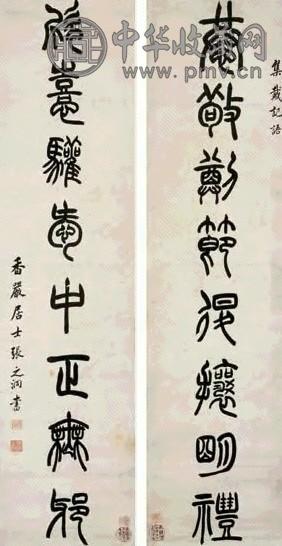 集戴記語
恭敬撙節退讓明禮
欣喜驩愛中正無邪
香嚴居士張之洞書
中华收藏网
www.pmv.cn